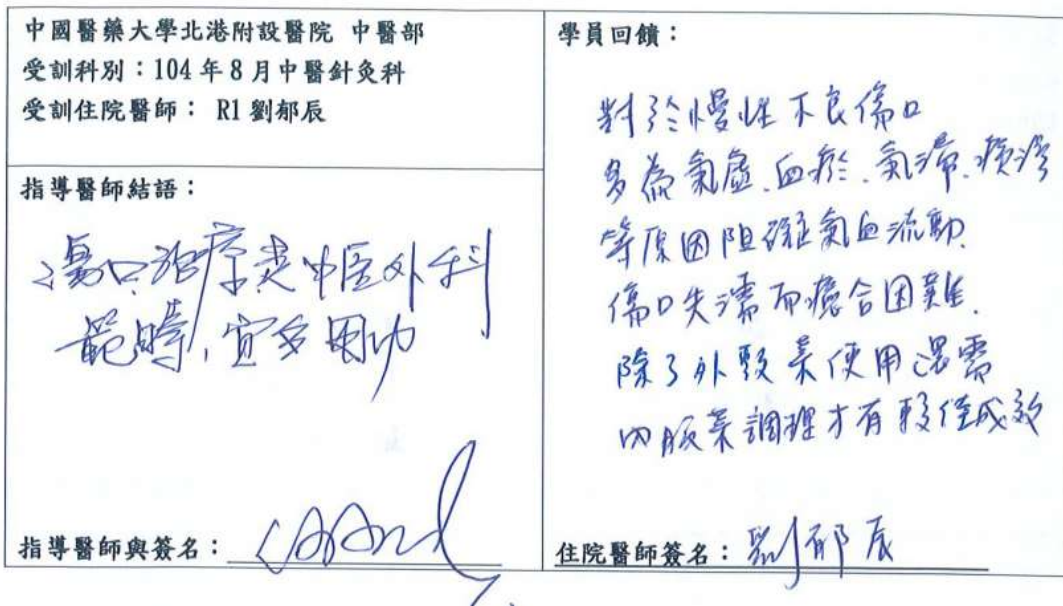 中國醫藥大學北港附設醫院 中醫部
受訓科別：104年8月中醫針灸科
受訓住院醫師： R1劉郁辰
指導醫師結語：
傷口治療是中医外科
範疇,宜多用功
指導醫師與簽名：
學員回饋：
對於慢性不良傷口
多為氣虛.血瘀.氣滯.痰濕
等原因阻礙氣血流動.
傷口失濡而癒合困難.
除了外敷藥使用還需
內服藥調理才有較佳成效
住院醫師簽名：劉郁辰